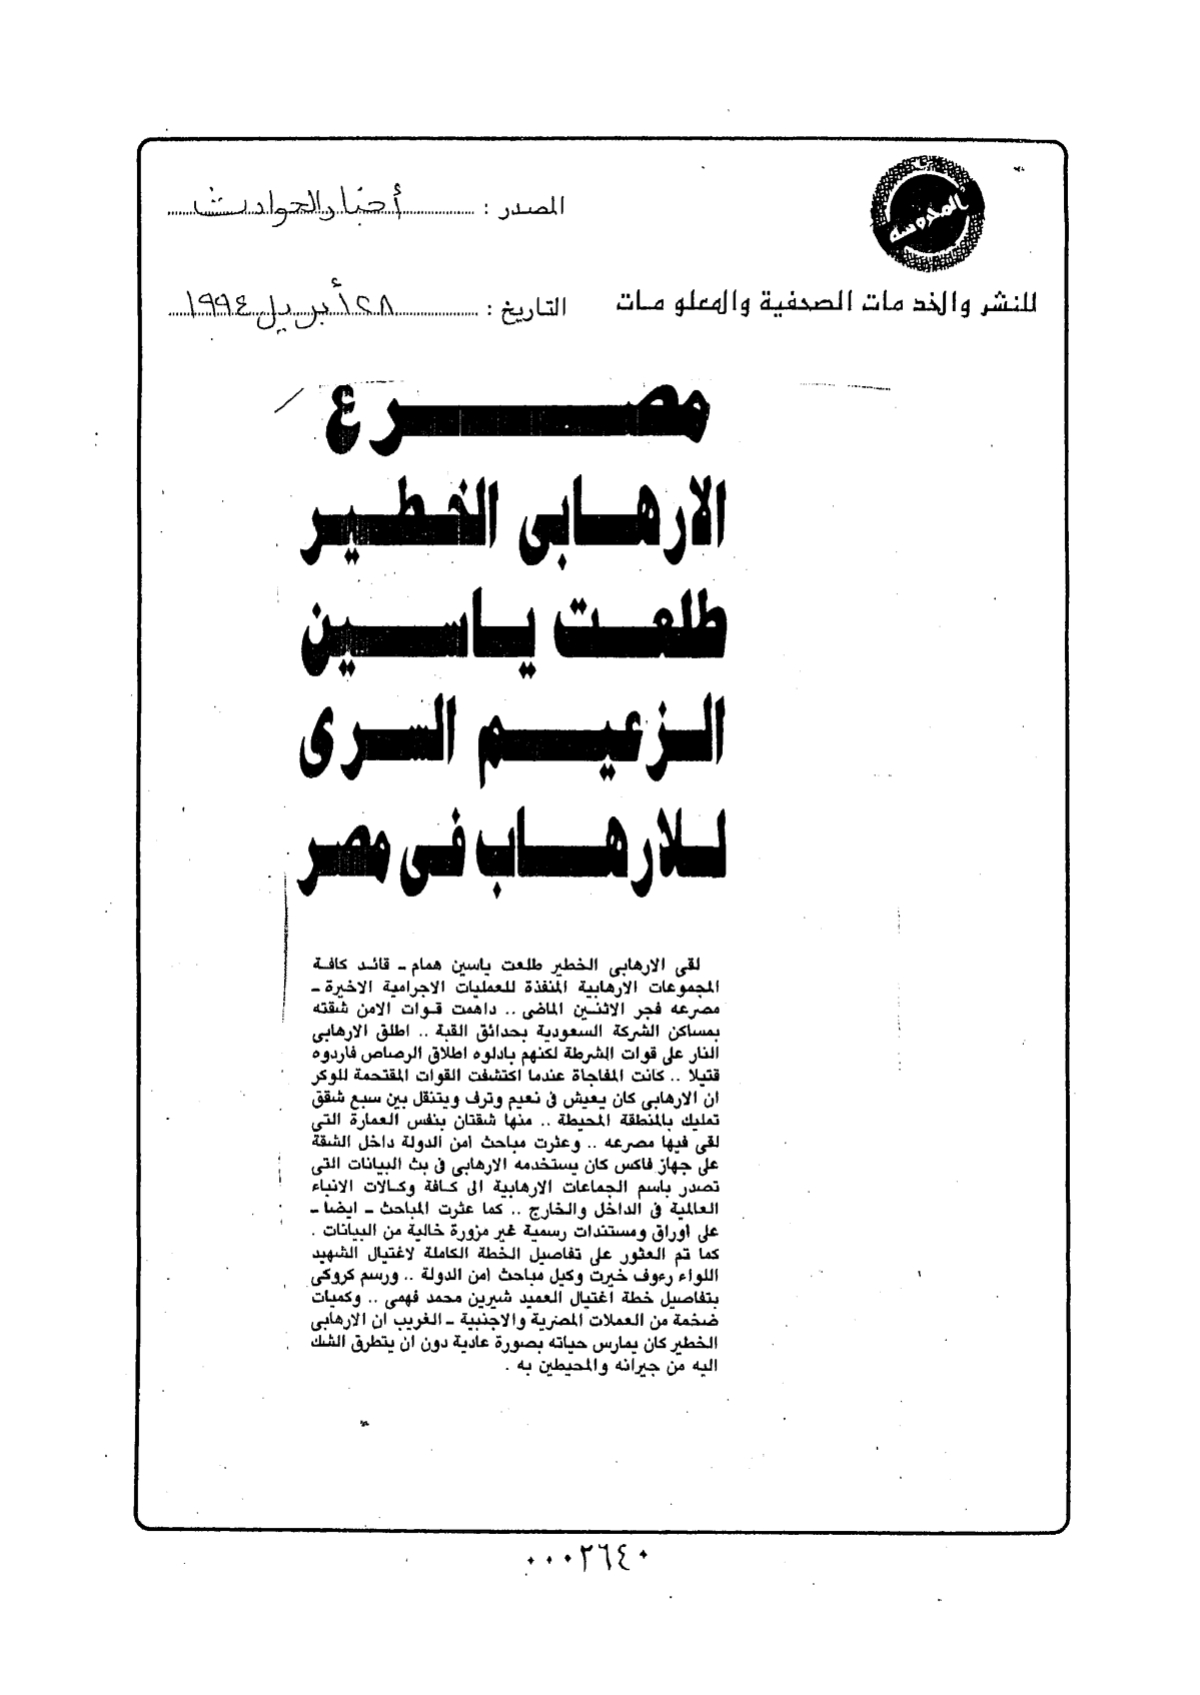 المحروسة
للنشر والخدمات الصحفية والمعلومات
المصدر : أخبار الحوادث
التاريخ : ٢٨ أبريل ١٩٩٤
مصرع
الارهابى الخطير
طلعت ياسين
الزعيم السرى
للارهاب فى مصر
لقى الارهابى الخطير طلعت ياسين همام ـ قائد كافة
المجموعات الارهابية المنفذة للعمليات الاجرامية الاخيرة ـ
مصرعه فجر الاثنين الماضى .. داهمت قوات الامن شقته
بمساكن الشركة السعودية بحدائق القبة .. اطلق الارهابى
النار على قوات الشرطة لكنهم بادلوه اطلاق الرصاص فاردوه
قتيلا .. كانت المفاجاة عندما اكتشفت القوات المقتحمة للوكر
ان الارهابى كان يعيش فى نعيم وترف ويتنقل بين سبع شقق
تمليك بالمنطقة المحيطة .. منها شقتان بنفس العمارة التى
لقى فيها مصرعه .. وعثرت مباحث امن الدولة داخل الشقة
على جهاز فاكس كان يستخدمه الارهابى فى بث البيانات التى
تصدر باسم الجماعات الارهابية الى كافة وكالات الانباء
العالمية فى الداخل والخارج .. كما عثرت المباحث ـ ايضا ـ
على اوراق ومستندات رسمية غير مزورة خالية من البيانات .
كما تم العثور على تفاصيل الخطة الكاملة لاغتيال الشهيد
اللواء رءوف خيرت وكيل مباحث امن الدولة .. ورسم كروكى
بتفاصيل خطة اغتيال العميد شيرين محمد فهمى .. وكميات
ضخمة من العملات المصرية والاجنبية ـ الغريب ان الارهابى
الخطير كان يمارس حياته بصورة عادية دون ان يتطرق الشك
اليه من جيرانه والمحيطين به .
٠٠٠٢٦٤٠